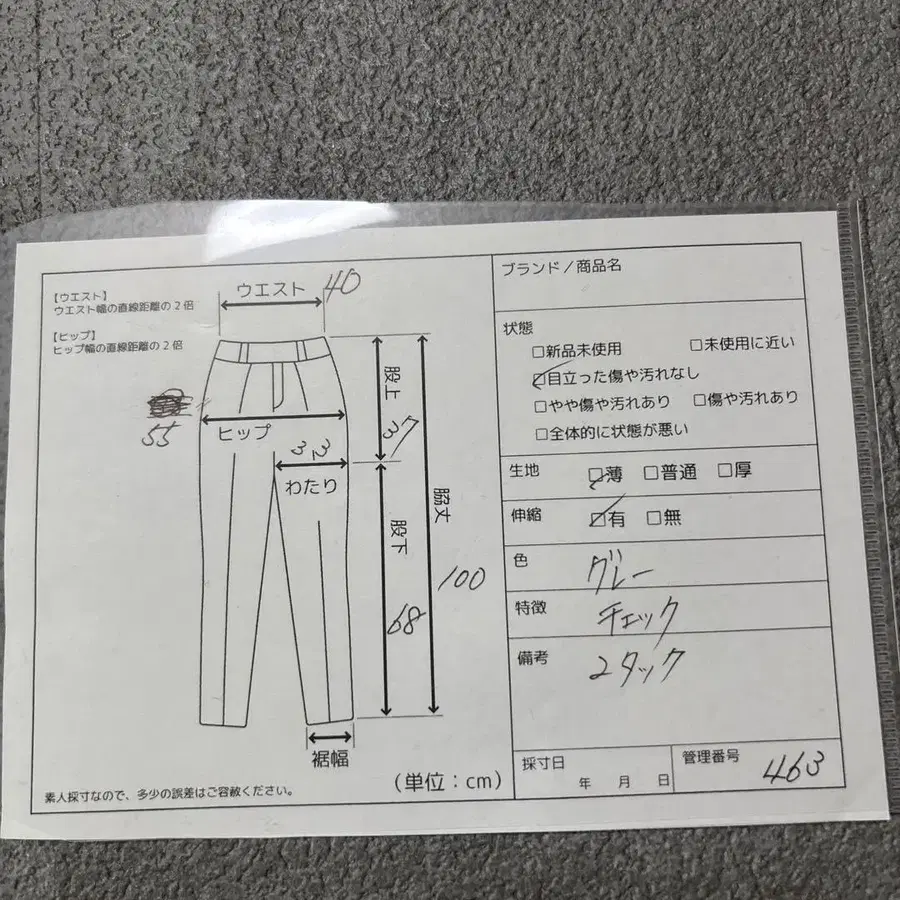 【ウエスト】
ウエスト幅の直線距離の2倍
【ヒップ】
ヒップ幅の直線距離の2倍
ウエスト 40
股上
37
55
ヒップ
33
わたり
股下
68
脇丈
100
裾幅
(単位:cm)
素人採寸なので、多少の誤差はご容赦ください。
ブランド/商品名
状態
□新品未使用 □未使用に近い
☑目立った傷や汚れなし
□やや傷や汚れあり □傷や汚れあり
□全体的に状態が悪い
生地 ☑薄 □普通 □厚
伸縮 ☑有 □無
色 グレー
特徴 チェック
備考 2タック
採寸日 年 月 日
管理番号 463